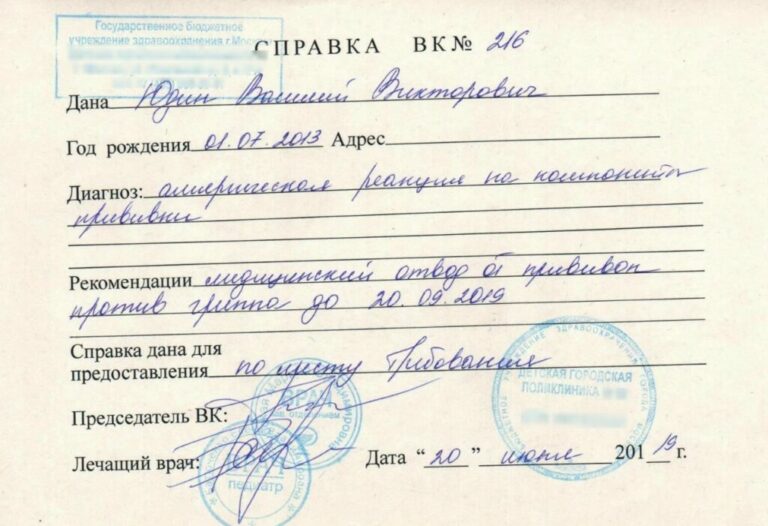 Государственное бюджетное
учреждение здравоохранения г.Москвы
СПРАВКА ВК № 216
Дана Юдин Василий Викторович
Год рождения 01.07.2013 Адрес
Диагноз: аллергическая реакция на компоненты
прививки
Рекомендации медицинский отвод от прививок
против гриппа до 20.09.2019
Справка дана для
предоставления по месту Требования
ДЕТСКАЯ ГОРОДСКАЯ
ПОЛИКЛИНИКА
Председатель ВК:
ВРАЧ
Лечащий врач:
педиатр
Дата “20” июля 2019 г.